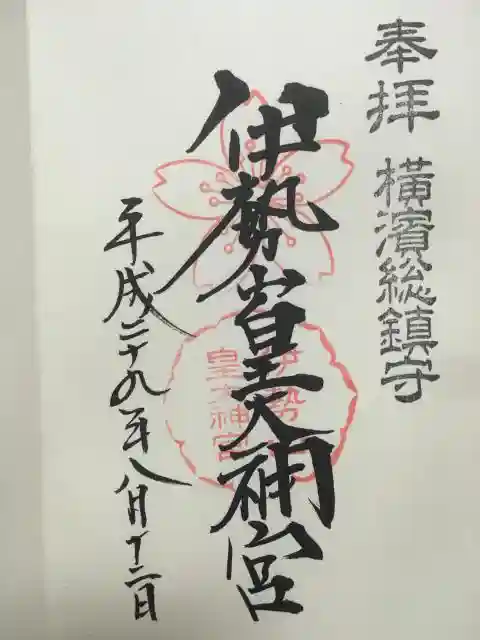 奉拝 横濱総鎮守
伊勢山皇大神宮
平成二十九年八月十二日
伊勢山
皇大神宮